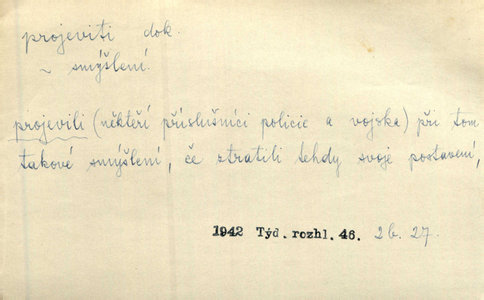 projeviti dok.
~ smýšlení.
projevili (někteří příslušníci policie a vojska) při tom
takové smýšlení, če ztratili tehdy svoje postavení,
1942 Týd. rozhl. 46. 2b. 27.